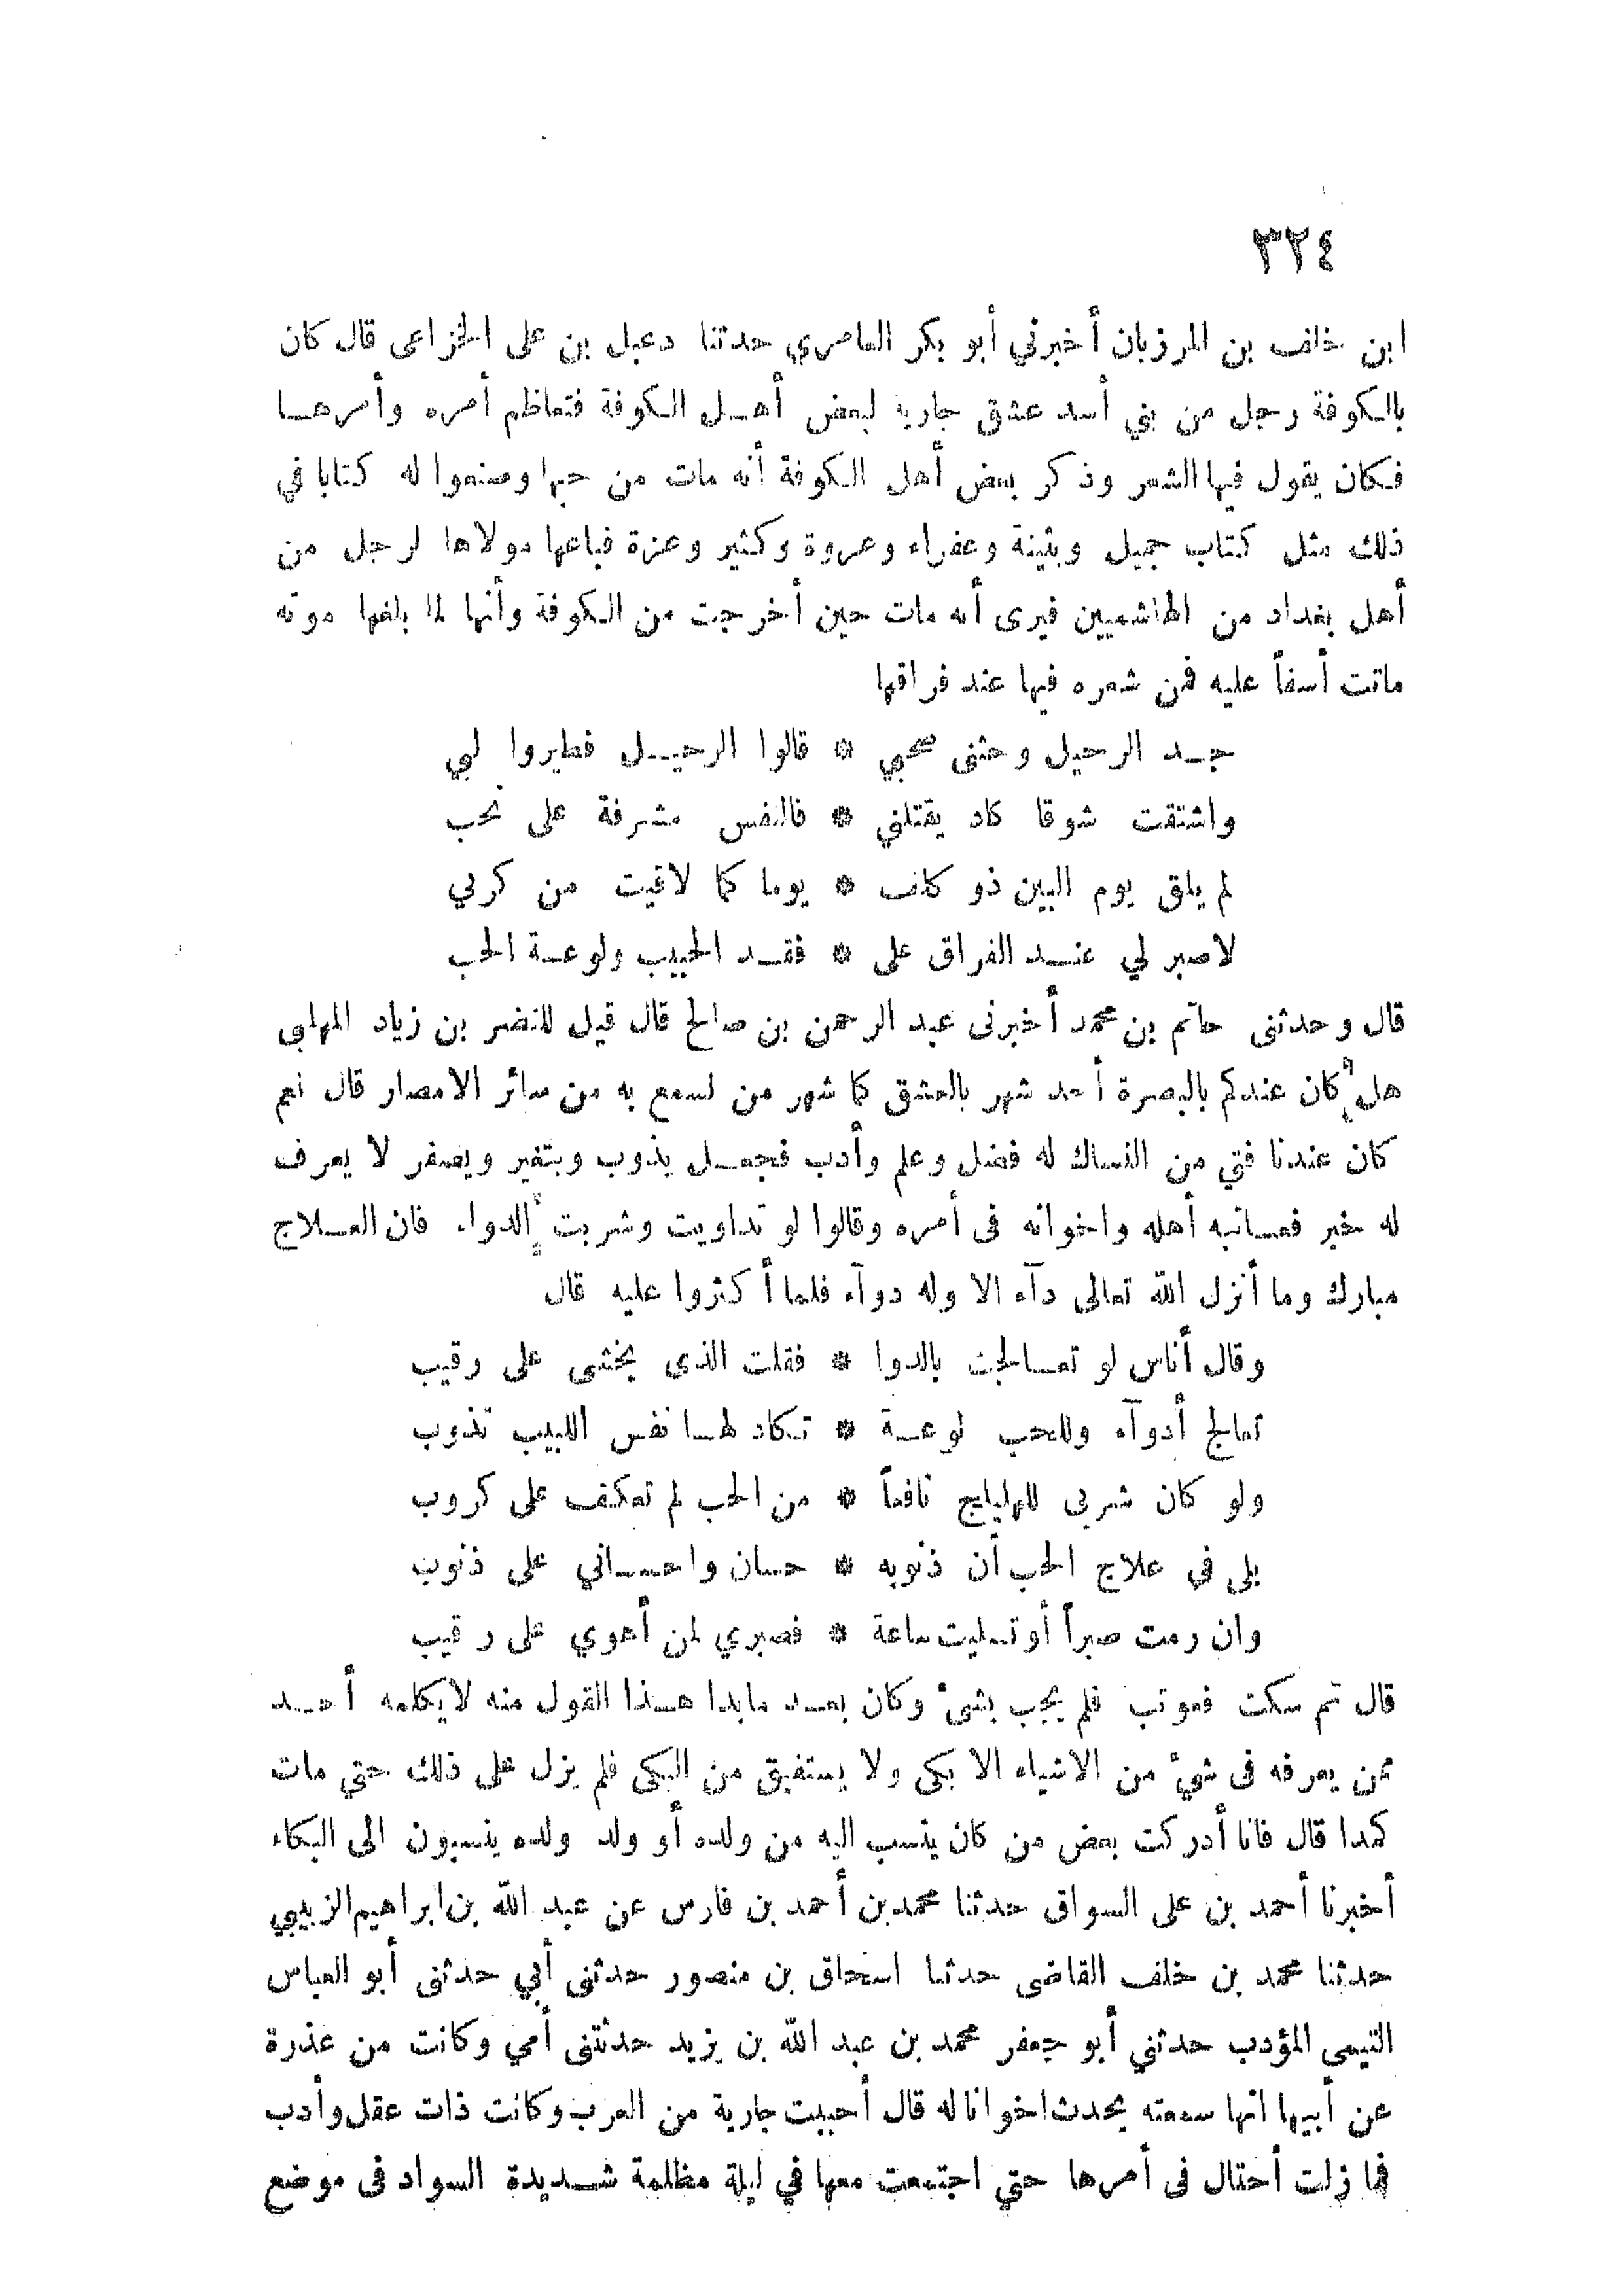 ٣٢٤
ابن خلف بن المرزبان أخبرني أبو بكر العامري حدثنا دعبل بن على الخزاعى قال كان
بالكوفة رجل من بني أسد عشق جارية لبعض أهل الكوفة فتعاظم أمره وأمرها
فكان يقول فيها الشعر وذكر بعض أهل الكوفة أنه مات من حبها وصنعوا له كتابا في
ذلك مثل كتاب جميل وبثينة وعفراء وعروة وكثير وعزة فباعها مولاها لرجل من
أهل بغداد من الهاشميين فيرى أنه مات حين أخرجت من الكوفة وأنها لما بلغها موته
ماتت أسفاً عليه فمن شعره فيها عند فراقها
جد الرحيل وحثنى صحبي * قالوا الرحيل فطيروا لبي
واشتقت شوقا كاد يقتلني * فالنفس مشرفة على نحب
لم يلق يوم البين ذو كلف * يوما كما لاقيت من كربي
لاصبر لي عند الفراق على * فقد الحبيب ولوعة الحب
قال وحدثنى حاتم بن محمد أخبرنى عبد الرحمن بن صالح قال قيل للنضر بن زياد المهلبى
هل كان عندكم بالبصرة أحد شهر بالعشق كما شهر من نسمع به من سائر الامصار قال نعم
كان عندنا فتي من النساك له فضل وعلم وأدب فجعل يذوب ويتغير ويصفر لا يعرف
له خبر فعاتبه أهله واخوانه فى أمره وقالوا لو تداويت وشربت الدواء فان العلاج
مبارك وما أنزل الله تعالى دآء الا وله دوآء فلما أكثروا عليه قال
وقال أناس لو تعالجت بالدوا * فقلت الذى يخشى على رقيب
تعالج أدوآء وللحب لوعة * تكاد لها نفس اللبيب تذوب
ولو كان شربى للهليلج نافعاً * من الحب لم تعكف على كروب
بلى فى علاج الحب أن ذنوبه * حسان واحسانى على ذنوب
وان رمت صبراً أو تسليت ساعة * فصبري لمن أهوي على رقيب
قال ثم سكت فعوتب فلم يجب بشئ وكان بعد مابدا هذا القول منه لايكلمه أحد
ممن يعرفه فى شئ من الاشياء الا بكى ولا يستفيق من البكى فلم يزل على ذلك حتي مات
كمدا قال فانا أدركت بعض من كان ينسب اليه من ولده أو ولد ولده ينسبون الى البكاء
أخبرنا أحمد بن على السواق حدثنا محمد بن أحمد بن فارس عن عبد الله بن ابراهيم الزبيبي
حدثنا محمد بن خلف القاضى حدثنا اسحاق بن منصور حدثنى أبي حدثنى أبو العباس
التيمى المؤدب حدثني أبو جعفر محمد بن عبد الله بن يزيد حدثتنى أمي وكانت من عذرة
عن أبيها انها سمعته يحدث اخوانا له قال أحببت جارية من العرب وكانت ذات عقل وأدب
فما زلت أحتال فى أمرها حتي اجتمعت معها في ليلة مظلمة شديدة السواد فى موضع